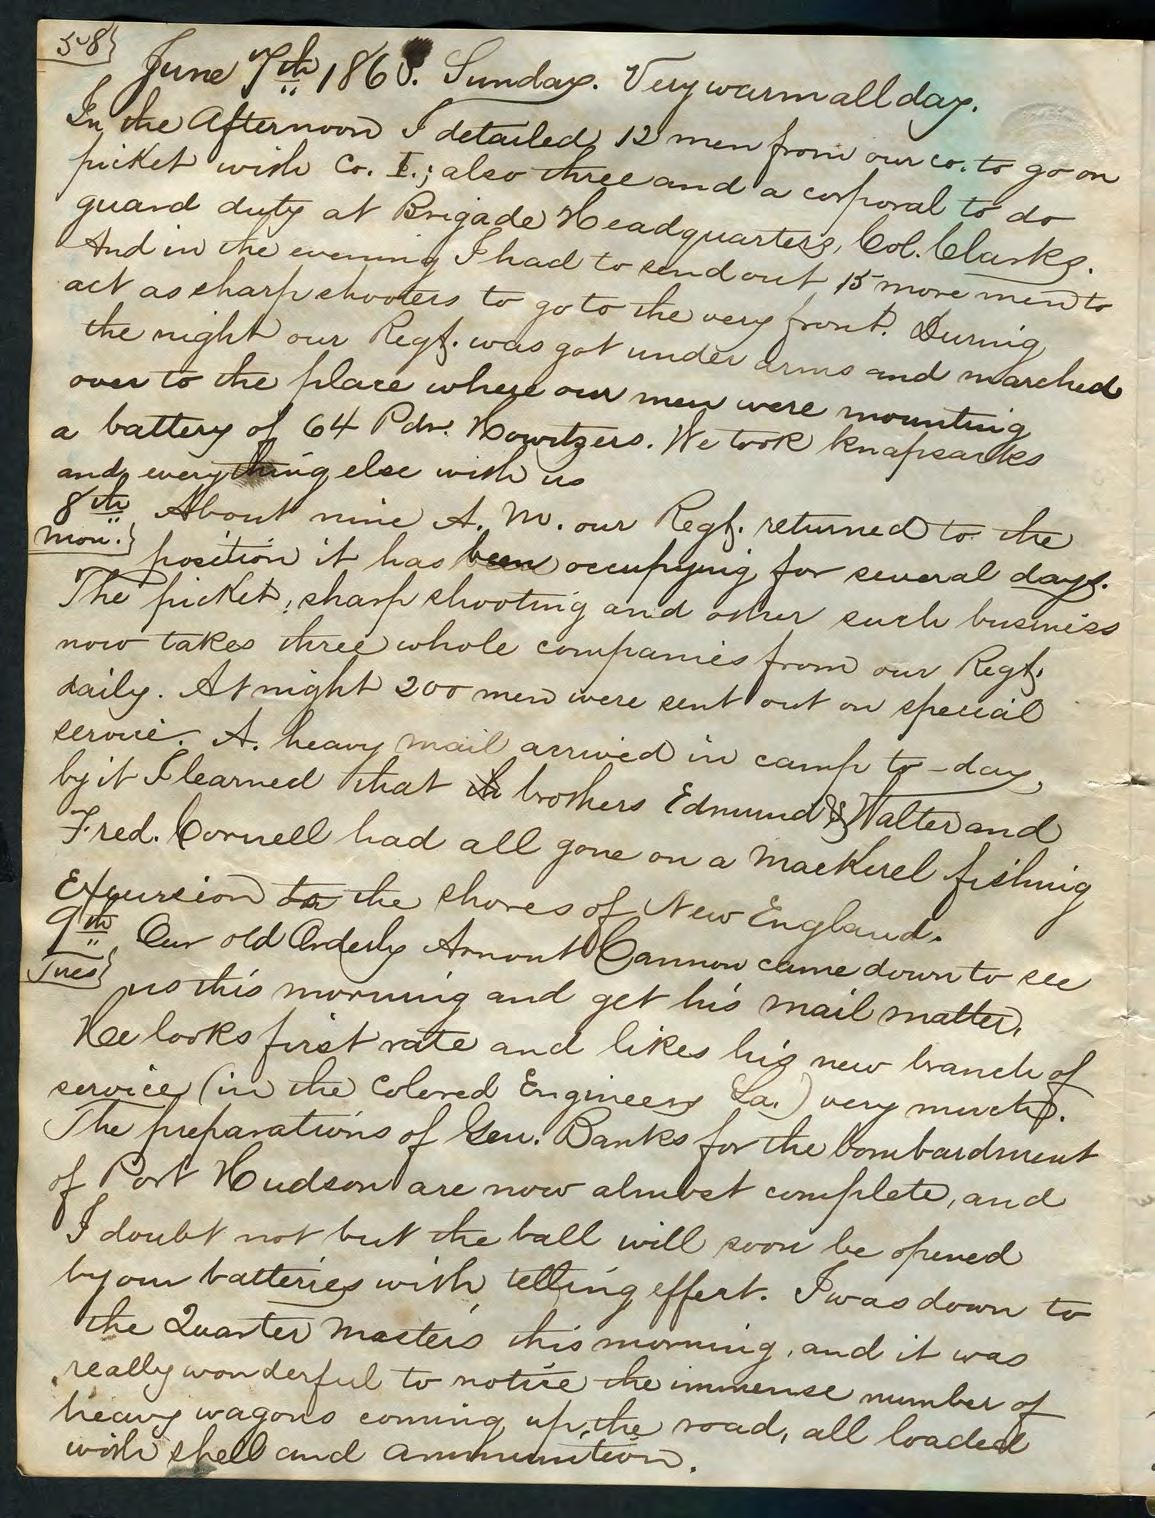 58}
June 7th 1863. Sunday. Very warm all day.
In the Afternoon I detailed 12 men from our co. to go on
picket with Co. I.; also three and a corporal to do
guard duty at Brigade Headquarters, Col. Clarks.
And in the evening I had to send out 15 more men to
act as sharp shooters to go to the very front. During
the night our Regt. was got under arms and marched
over to the place where our men were mounting
a battery of 64 Pdr. Howitzers. We took knapsacks
and everything else with us
8th About nine A. M. our Regt. returned to the
Mon.} position it has been occupying for several days.
The picket, sharp shooting and other such business
now takes three whole companies from our Regt.
daily. At night 200 men were sent out on special
service. A. heavy mail arrived in camp to-day,
by it I learned that brothers Edmund & Walter and
Fred. Cornell had all gone on a Mackerel fishing
Excursion to the shores of New England.
9th Our old Orderly Armont Cannon came down to see
Tues} us this morning and get his mail matter.
He looks first rate and likes his new branch of
service (in the Colored Engineers La.) very much.
The preparations of Gen. Banks for the bombardment
of Port Hudson are now almost complete, and
I doubt not but the ball will soon be opened
by our batteries with telling effect. I was down to
the Quarter Masters this morning, and it was
really wonderful to notice the immense number of
heavy wagons coming up the road, all loaded
with shell and ammunition.